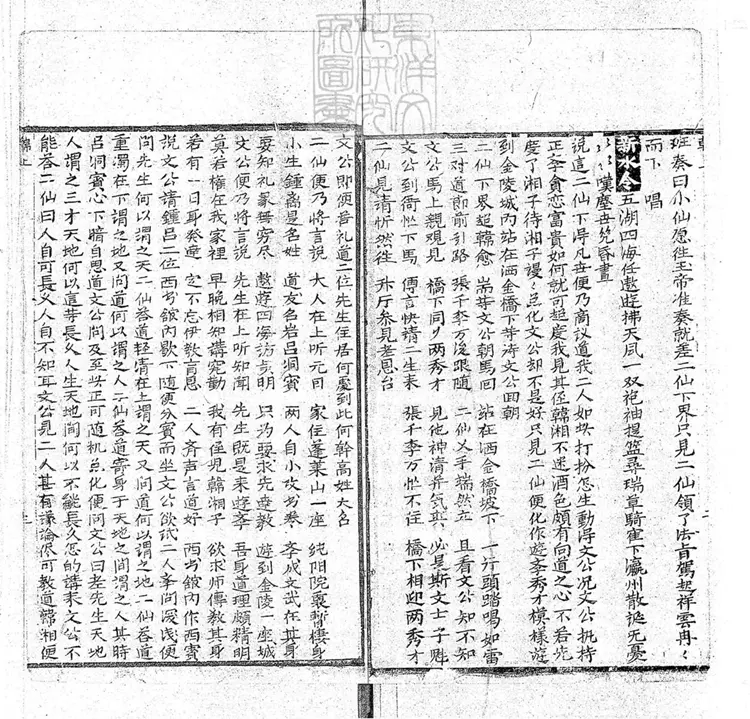 班奏曰小仙愿往玉帝准奏就差二仙下界只見二仙領了法旨駕起祥雲冉〻
而下 唱
新水令 五湖四海任遨遊拂天風一双袍袖提籃尋瑞草騎寉下瀛州散誕无憂
嘆塵世兊昏晝
說這二仙下得凡世便乃商議道我二人如此打扮怎生動得文公况文公执持
正李貪恋富貴如何就可超度我見其侄韓湘不迷酒色頗有向道之心不若先
度了湘子待湘子謾〻点化文公却不是好只見二仙便化作遊斈秀才模樣遊
到金陵城內站在洒金橋下等待文公回朝
二仙下界超韓愈 當時文公朝馬回 站在洒金橋坡下 一斤頭踏喝如雷
三对道節前引路 張千李万後跟隨 二仙乂手端然立 且看文公知不知
文公馬上親观見 橋下同〻两秀才 見他神清并气爽 必是斯文士子魁
文公到衙忙下馬 傳言快請二生来 張千李万忙不迬 橋下相迎两秀才
二仙見請忻然往 升厅参見老恩台
文公即便答礼道二位先生住居何處到此何幹高姓大名
二仙便乃將言說 大人在上听元因 家住蓬莱山一座 純阳院裏暫棲身
小生鍾离是名姓 道友名岩吕洞賓 两人自小攻书卷 孝成文武在其身
要知礼象無穷尽 遨遊四海訪賁明 只为要求先達教 遊到金陵一座城
文公便乃將言說 先生在上听知聞 先生既是来遊斈 吾身道理頗精明
莫若權在我家裡 早晚相知講究勤 我有侄兒韓湘子 欲求师傅教其身
若有一日身發達 定不忘伊教育恩 二人齐声言道好 西书舘內作西賓
說文公請鍾吕二位西书舘內歇下随便分賓而坐文公欲試二人斈问淺浅便
问先生何以謂之天二仙答道轻清在上謂之天又问道何以謂之地二仙答道
重濁在下謂之地又问道何以謂之人二仙答道寄身于天地之间謂之人其時
吕洞賓心下暗自思道文公问及至此正可随机点化便问文公曰老先生天地
人謂之三才天地何以這等長久人生天地间何以不能長久怎的講来文公不
能答二仙曰人自可長久人自不知耳文公見二人甚有議論俻可教道韓湘便